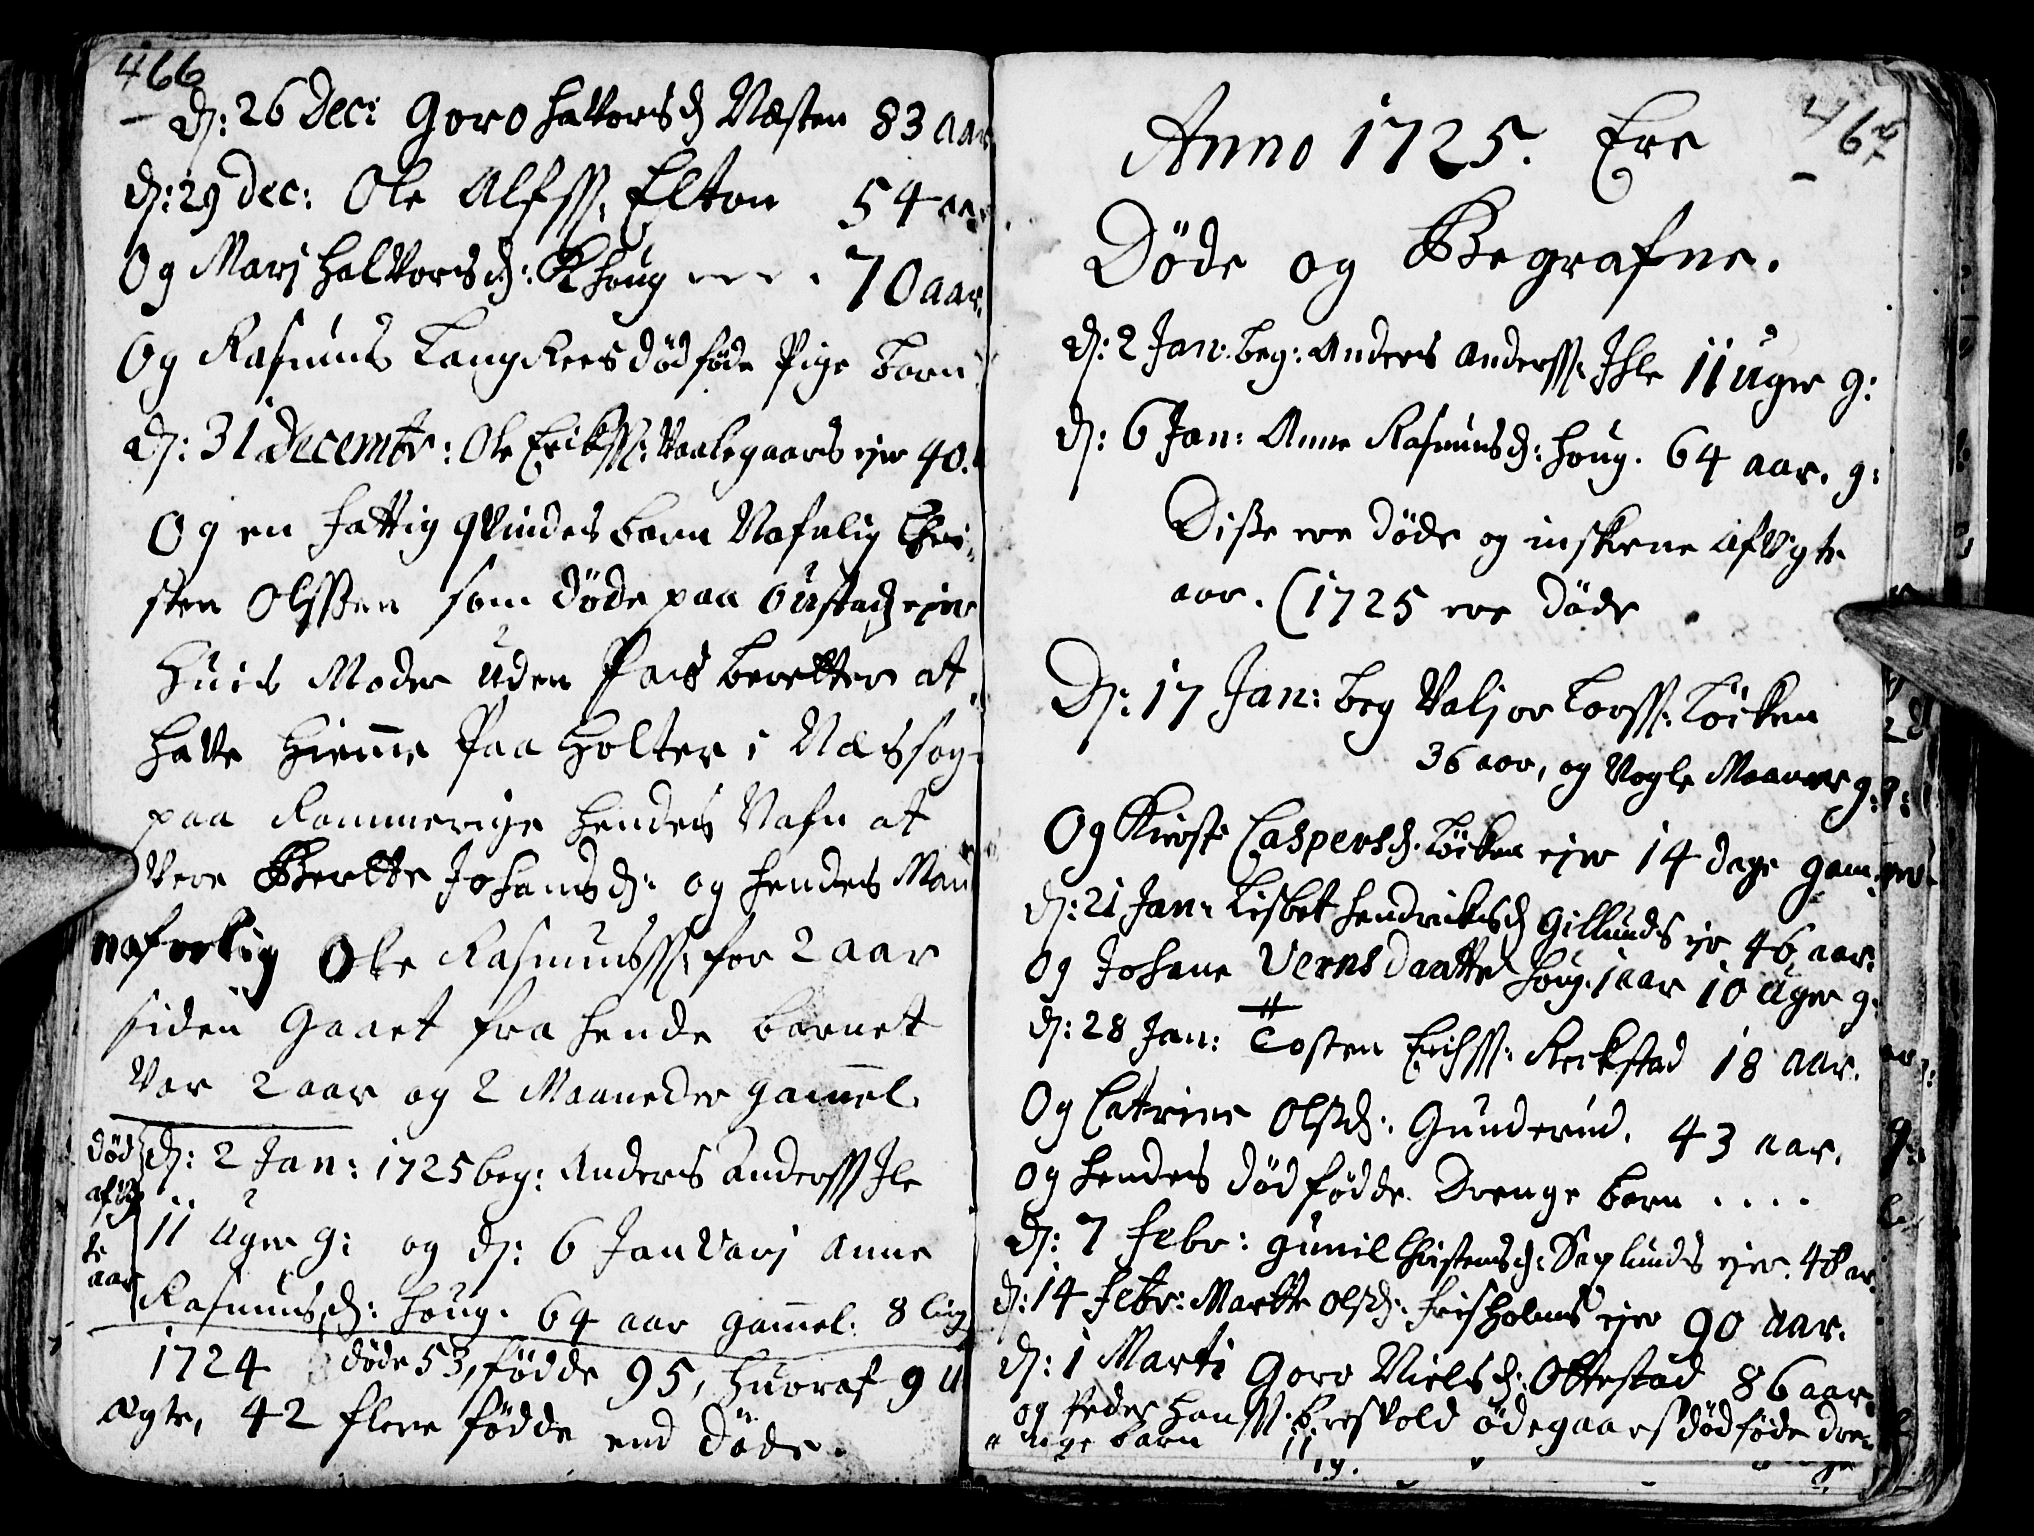 466
D: 26 Dec: Goro Halvorsd Næsten 83 aar
D: 29 Dec: Ole Alfss. Elton 54 aar
Og Marj Halvorsd: Khoug - - - . 70 aar.
Og Rasmus Langkers dødføde Pige barn
D: 31 Decembr: Ole Erikss: Vaalegaards ejer 40.
Og en fattig qvindes barn Nafnlig Chri-
sten Olssen som døde paa Gustad ejer
Huis Moder uden Pas beretter at
hafve hiemme paa Holter i Næs sog-
paa Rommerige hendes Nafn at
Vere Berette Johansd: og hendes Man
nafnlig Ole Rasmuss. for 2 aar
siden gaaet fra hende barnet
Var 2 aar og 2 Maaneder gammel.
død D: 2 Jan: 1725 beg: Anders Anderss Ile
afvig 11 Uger g: og D: 6 Januarj Anne
te
aar Rasmusd: Houg. 64 aar gammel: 8 lug
1724 døde 53, fødde 95, huoraf 9 u
ægte, 42 flere fødde end døde.
465
Anno 1725. Ere
Døde og Begrafne.
D: 2 Jan: beg: Anders Anderss: Ihle 11 Uger g:
D: 6 Jan: Anne Rasmusd: Houg. 64 aar. g:
Disse ere døde og inskrene afvigte
aar. (1725 ere døde
D: 17 Jan: beg Valjor Lorss: Løiken
36 aar, og Nogle Maaneder g:
Og Kirsti Caspersd. Løiken ejer 14 dage gam:
D: 21 Jan: Lisbet Hendriksd Gillunds ejr 46 aar:
Og Johane Vernsdaatter Houg. 1 aar 10 Uger g:
D: 28 Jan: Tosten Erichss: Rerkstad 18 aar.
Og Catrine Olsd: Gunderud. 43 aar.
og hendes død fødde Drenge barn . . . .
D: 7 Febr: Gunil Christensd: Saglunds ejer. 48 ar.
D: 14 Febr: Marthe Olsd: Frisholms ejer 90 aar.
D: 1 Marti Goro Nielsd: Ottestad 86 aar.
og Peder Hanss: Ereskold ødegaars dødføde dren-
ge barn 11